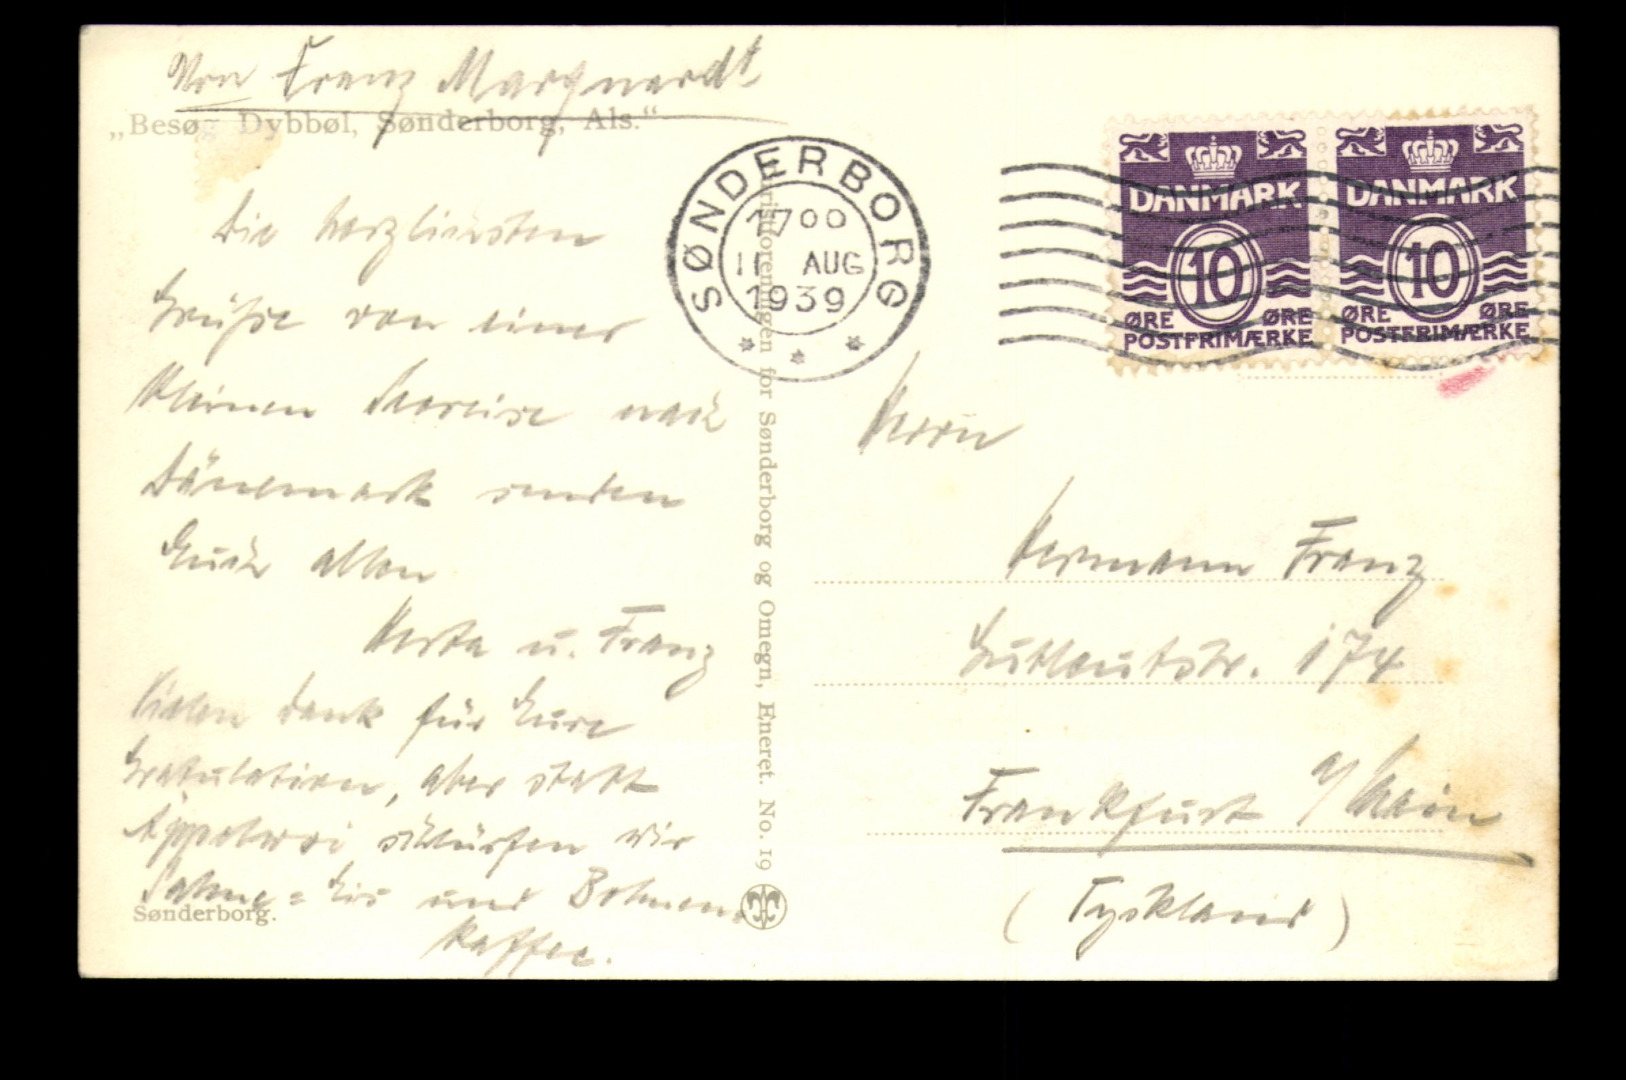 Von Franz Marquardt
„Besøg Dybbøl, Sønderborg, Als.“
Die herzlichsten
Grüße von einer
kleinen Seereise nach
Dänemark senden
Euch allen
Herta u. Franz
Vielen Dank für Eure
Gratulation, aber statt
Äppelwoi schlürfen wir
Sahne=Eis und Bohnen
Kaffee.
Sønderborg.
SØNDERBORG
1700
11 AUG
1939
Turistforeningen for Sønderborg og Omegn, Eneret. No. 19
DANMARK
10
ØRE ØRE
POSTFRIMÆRKE
DANMARK
10
ØRE ØRE
POSTFRIMÆRKE
Herrn
Hermann Franz
174
Frankfurt a/Main
(Tyskland)